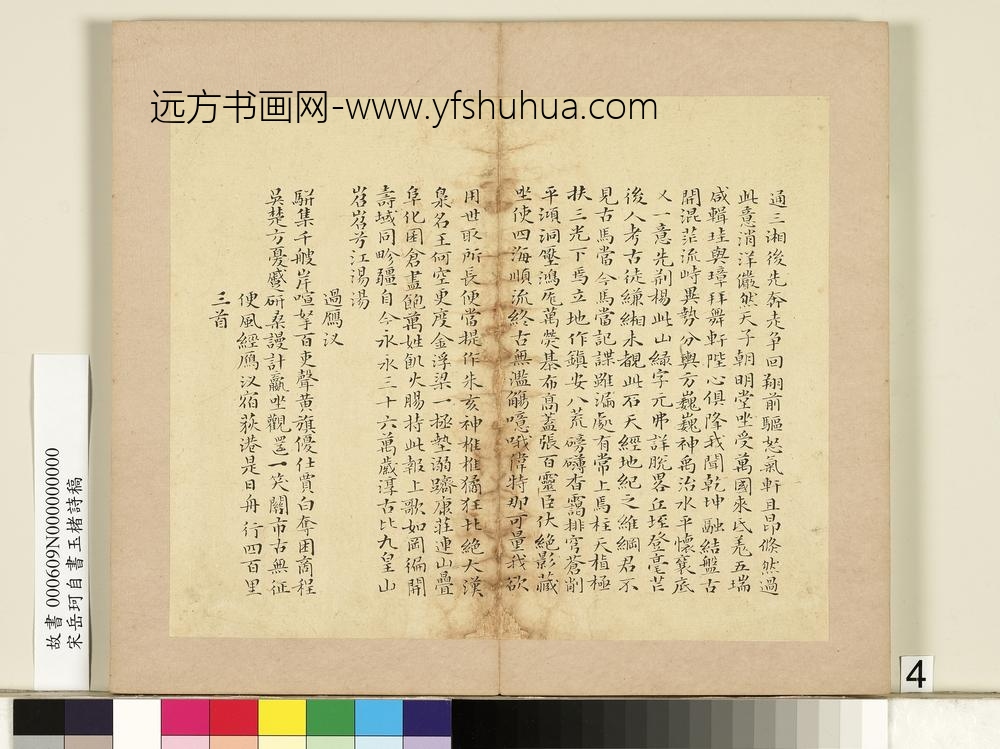 远方书画网-www.yfshuhua.com
通三湘後先奔走争回翔前驅怒氣軒且昂倏然過
此意消洋儼然天子朝明堂坐受萬國來氐羗五瑞
咸輯珪與璋拜舞軒陛心俱降我聞乾坤融結盤古
開混茫流峙異勢分輿方巍巍神禹治水平懷襄底
乂一意先荆楊此山緑字元弗詳脱畧丘垤登毫芒
後人考古徒縑緗未覩此石天經地紀之維綱君不
見古馬當今馬當記諜雖漏處有常上馬柱天植極
扶三光下馬立地作鎮安八荒磅礴杳靄排穹蒼削
平澒洞壓鴻厖萬熒棊布高蓋張百靈臣伏絶影藏
坐使四海順流終古無濫觴噫哦偉特那可量我欲
用世取所長便當提作朱亥神椎椎猖狂北絶大漠
梟名王何空更度金浮梁一拯墊溺躋康莊連山疊
阜化囷倉盡飽萬姓飢火賜持此報上歌如岡徧開
壽域同畛疆自今永永三十六萬歲淳古比九皇山
岧岧兮江湯湯
過鴈汊
駢集千艘岸喧拏百吏聲黄旗優仕賈白奪困商程
吳楚方憂蹙研桑謾計贏坐觀還一笑關市古無征
便風經鴈汊宿荻港是日舟行四百里
三首
故書000609N000000000
宋岳珂自書玉楮詩稿
4